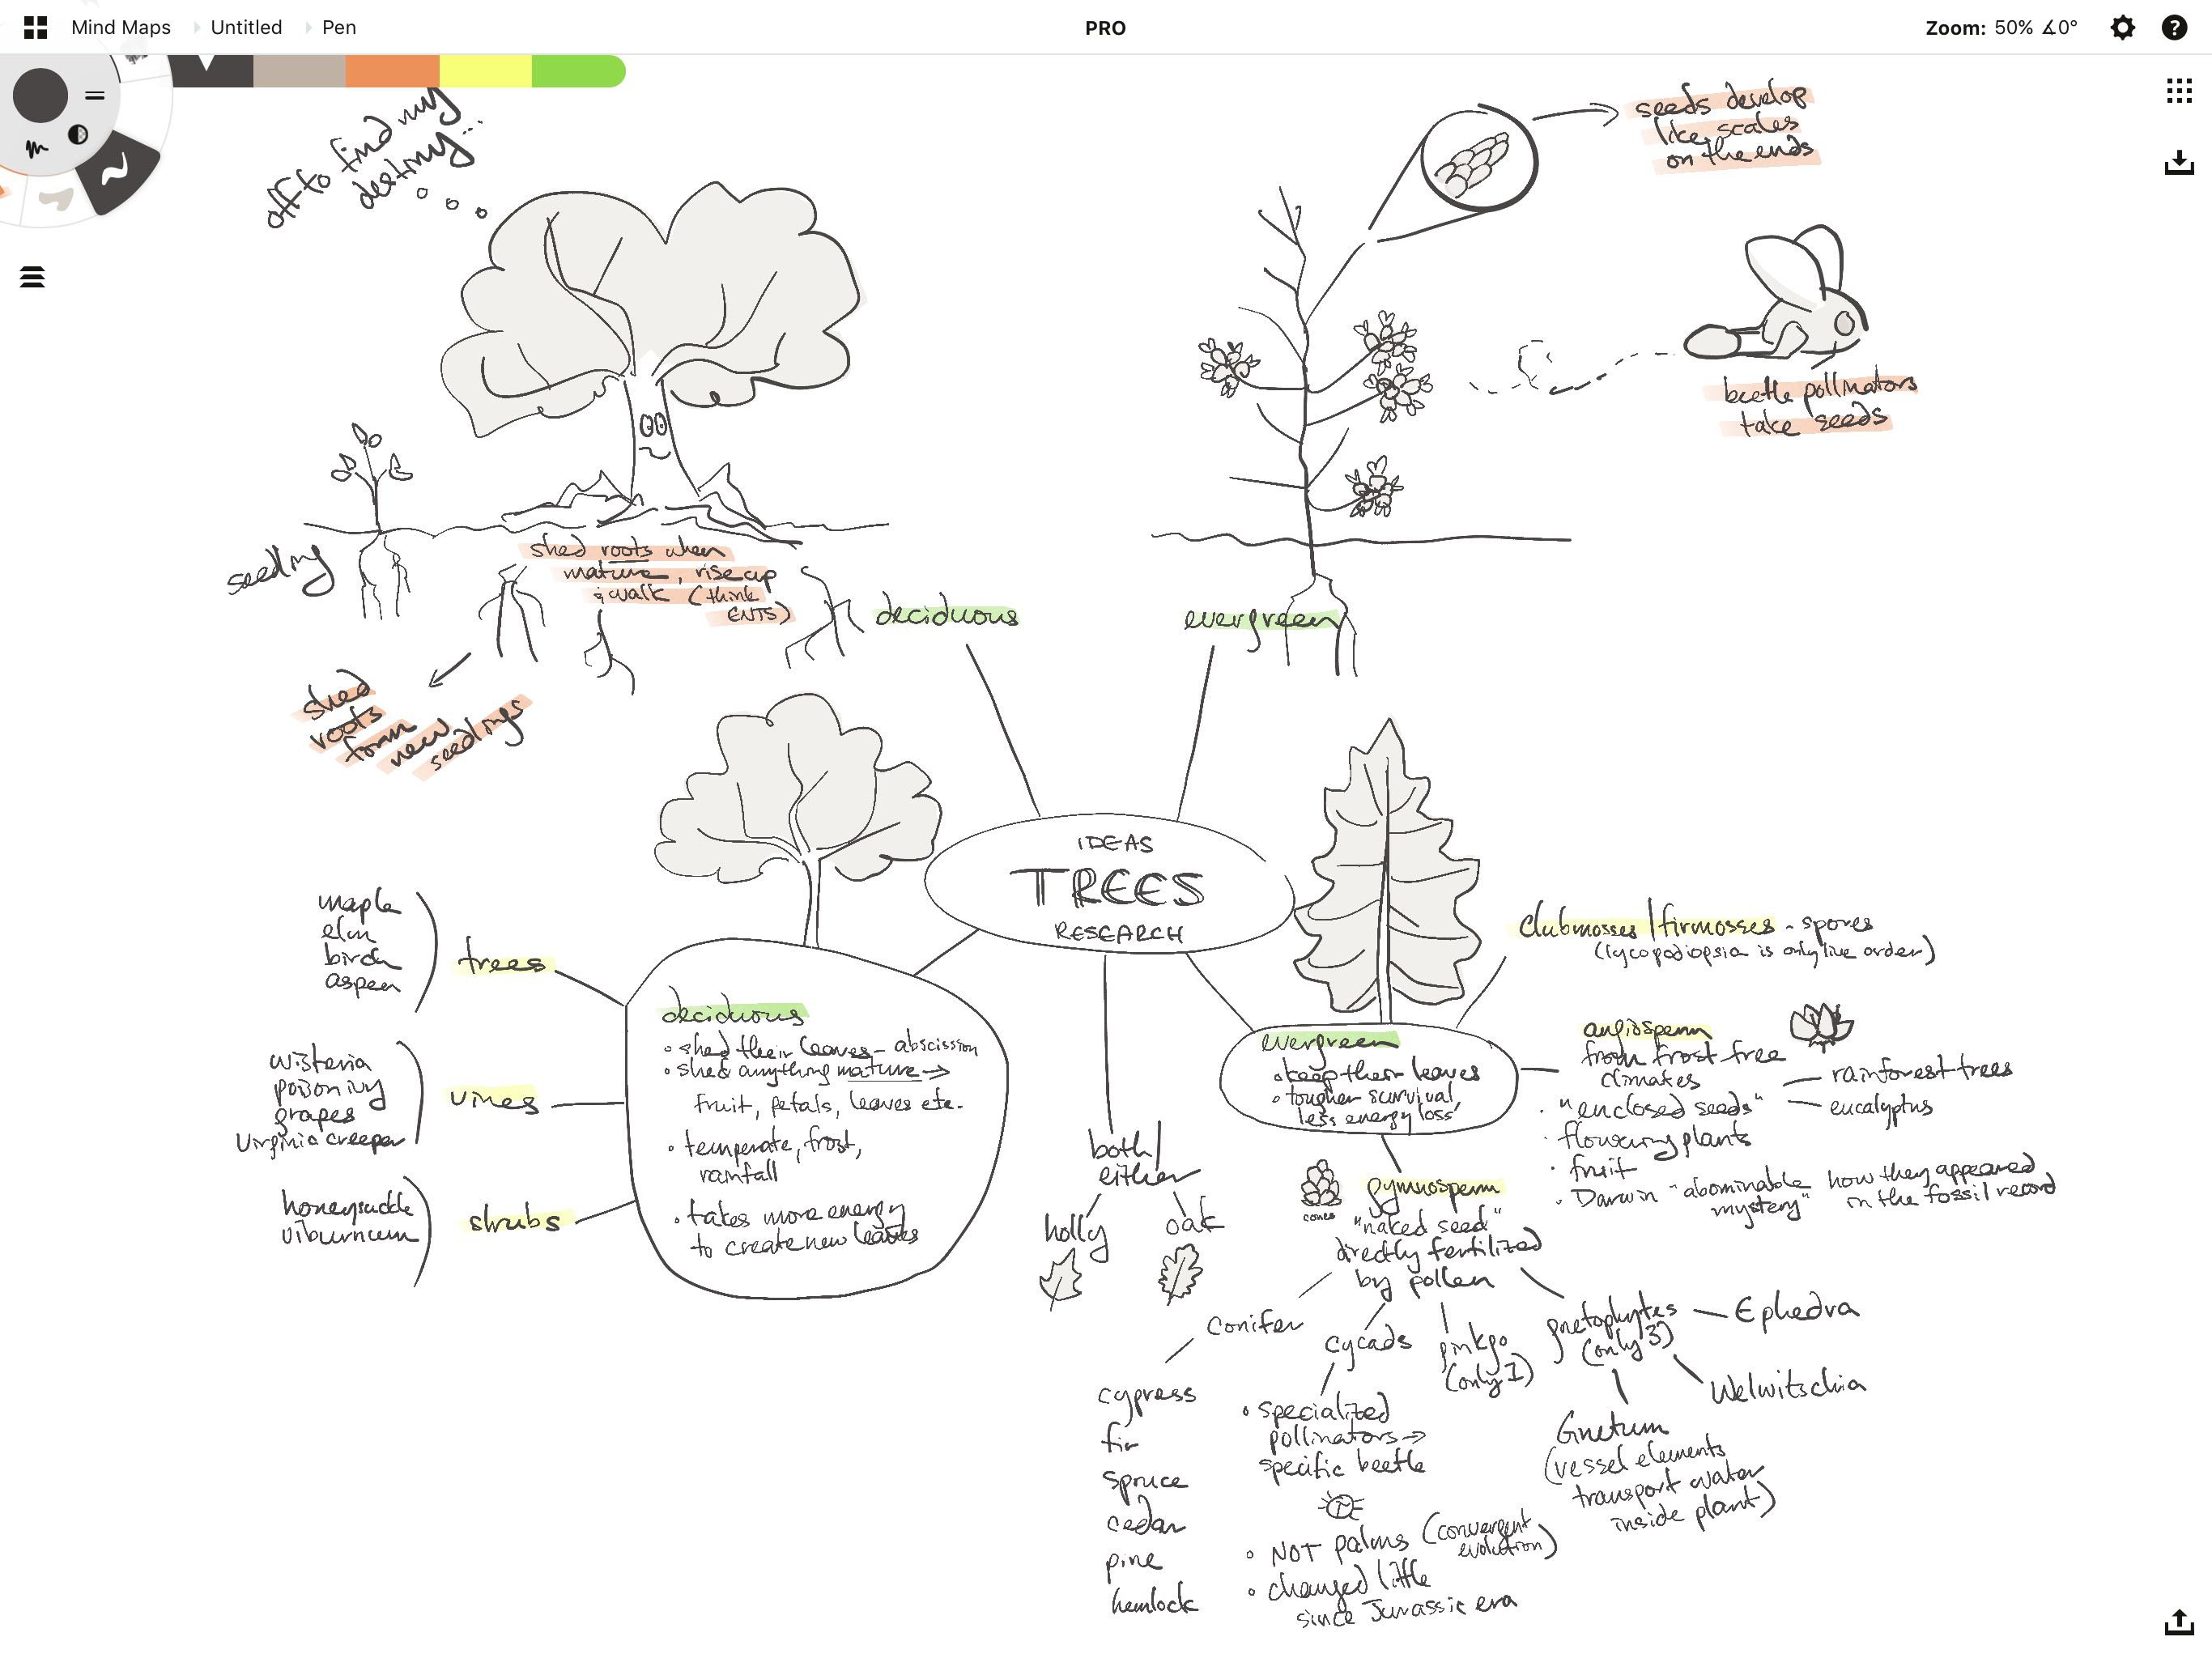 Mind Maps Untitled Pen
PRO
Zoom: 50% ∡0°
off to find my
destiny...
seeds develop
like scales
on the ends
beetle pollinators
take seeds
seedling
shed roots when
mature, rise up
& walk (think
ENTS)
deciduous
evergreen
shed
roots
form
new
seedlings
IDEAS
TREES
RESEARCH
maple
elm
birch
aspen
trees
wisteria
poison ivy
grapes
Virginia creeper
vines
honeysuckle
viburnum
shrubs
deciduous
• shed their leaves - abscission
• shed anything mature →
fruit, petals, leaves etc.
• temperate, frost,
rainfall
• takes more energy
to create new leaves
both/
either
holly
oak
evergreen
• keep their leaves
• tougher survival,
less energy loss
clubmosses/firmosses - spores
(lycopodiopsia is only live order)
angiosperm
from frost-free
climates
rainforest trees
eucalyptus
• "enclosed seeds"
• flowering plants
• fruit
• Darwin "abominable
mystery"
how they appeared
in the fossil record
cones
gymnosperm
"naked seed"
directly fertilized
by pollen
conifer
cypress
fir
spruce
cedar
pine
hemlock
cycads
• specialized
pollinators →
specific beetle
• NOT palms (convergent
evolution)
• changed little
since Jurassic era
ginkgo
(only 1)
gnetophytes
(only 3)
Ephedra
Welwitschia
Gnetum
(vessel elements
transport water
inside plant)